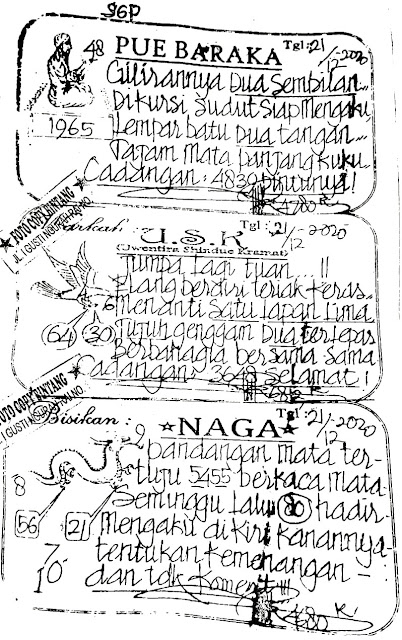 sgp
48 PUE BARAKA Tgl: 21/12-2020
Gilirannya Dua Sembilan..
Dikursi Sudut Siap Mengaku
1965 Lempar batu Dua tangan...
Tajam Mata Panjang Kuku.
Cadangan: 4839 pintunya!
FOTO COPY BINTANG
JL. I GUSTI NGURAH RAI NO
Barkah: U.S.K Tgl: 21/12-2020
(Uwentira Shindue Kramat)
Jumpa lagi tuan....!!
Elang berdiri teriak keras..
Menanti Satu Lapan Lima
64 30 Tujuh genggam Dua terlepas
Berbahagia bersama sama
Cadangan: 3648 Selamat!
FOTO COPY BINTANG
Bisikan: NAGA Tgl: 21/12-2020
9 Pandangan mata ter-
tuju 5455 berkaca mata.
8 Seminggu Lalu 80 hadir-
56 21 Mengaku di kiri kanannya-
7 tentukan kemenangan-
10 dan tdk komen!!!